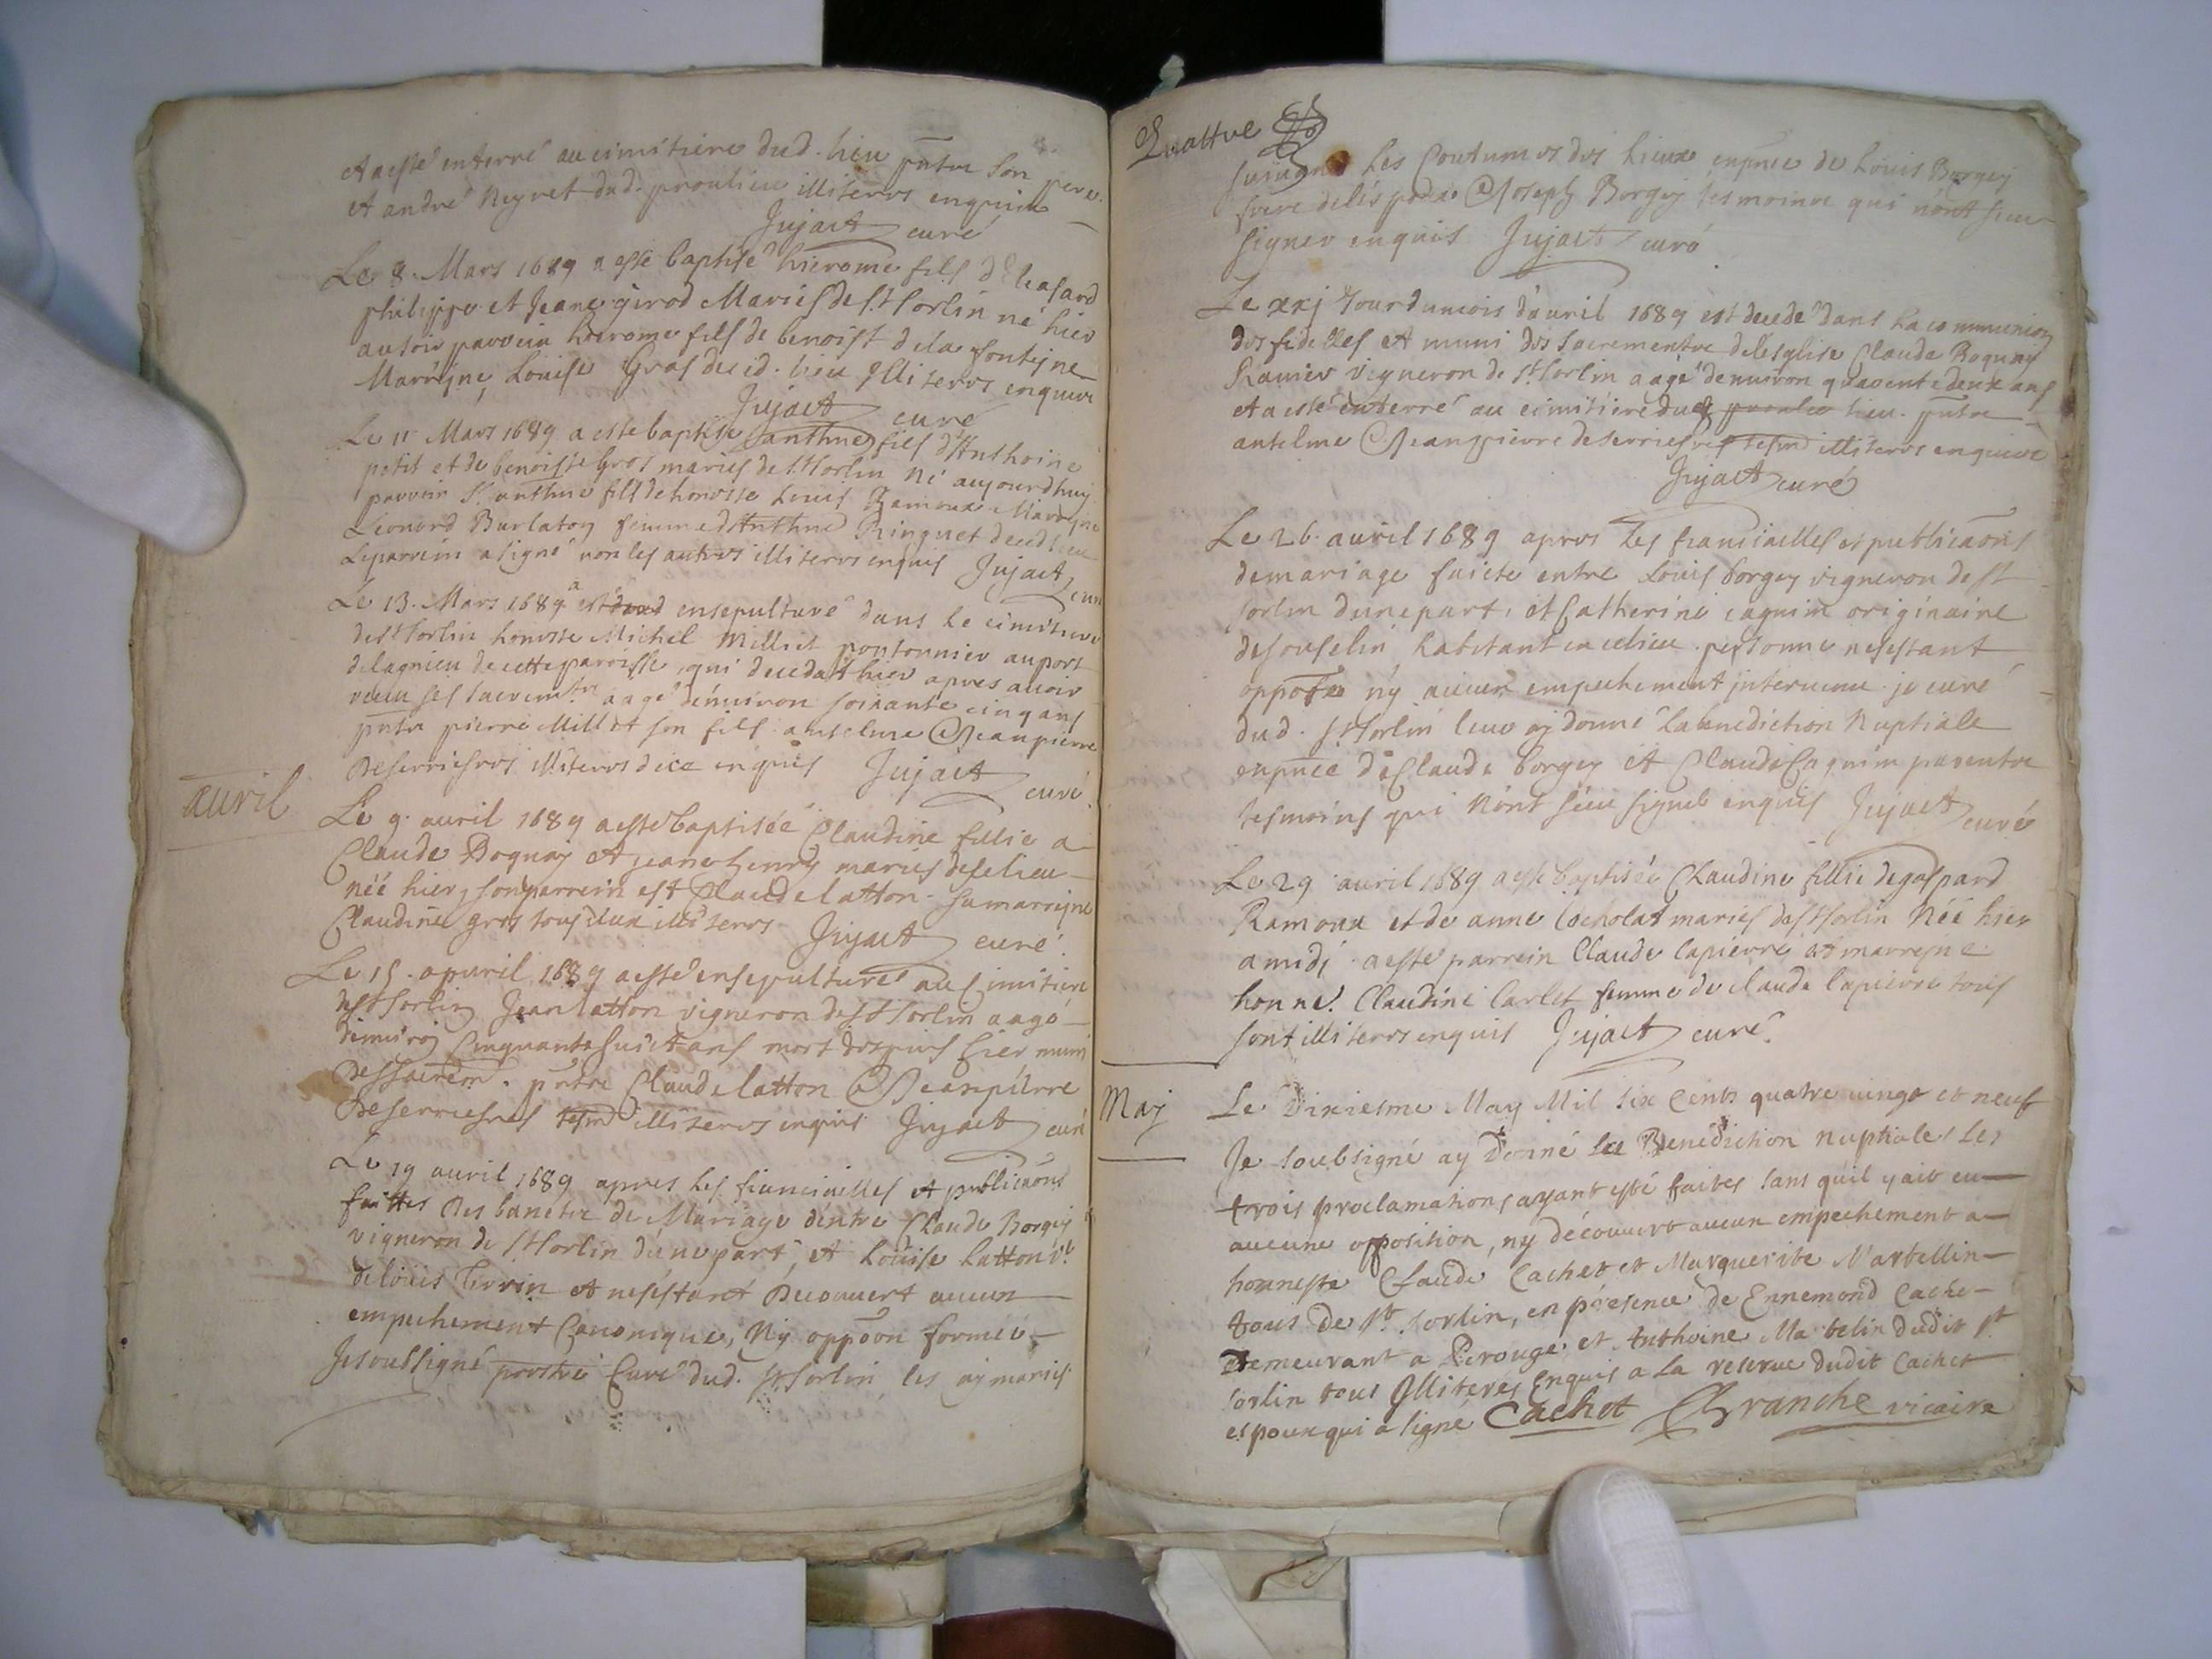 et a esté enterré au cimitiere dud. lieu pntz son pere.
et andré Neyret dud. proulieu illiteros enquis
Jujact curé
Le 8. Mars 1689 a esté baptisé hierome fils d'
philippe et Jeane girod Mariés de St Sorlin né hier
au soir parrein hierome fils de benoist dela fonteyne
Marreyne Louise Gros ducid. lieu illiteros enquis
Jujact curé
Le 11 Mars 1689 a esté baptisé anthne fils d'Anthoine
petit et de benoiste Gros mariés de St Sorlin né aujourdhuy
parrein Sr anthne fils de honeste Louis Ramoux Mareyne
Leonard Burlaton femme d'Anthne Ringuet ducd lieu
Leparrein a signé non les autres illiteros enquis Jujact curé
Le 13. Mars 1689 a esté ensepulturé dans le cimitiere
de St Sorlin honeste Michel Milliet pontonnier au port
de lagnieu de cette parroisse, qui decedat hier apres avoir
receu ses sacremts aagé d'environ soixante cinq ans
pntz pierre Milliet son fils anselme & Jeanpierre
Deserriesros illiteros de ce enquis Jujact curé.
auril
Le 9. auril 1689 a esté baptisée Claudine fillie a
Claude Boquay et Jeane henry mariés de ce lieu
née hier, son parrein est Claude latton sa marreyne
Claudine gros tous deux illiteros Jujact curé.
Le 15. apvril 1689 a esté ensepulturé au Cimitiere
de St Sorlin Jean latton vigneron de St Sorlin aagé
denviron Cinquante huict ans mort despuis hier muni
des sacremts. pntz Claude latton & Jeanpierre
Deserriesres tesm illiteros enquis Jujact curé
Le 19 auril 1689 apres les fianciailles et publicaons
faittes des bancts de Mariage d'entre Claude Borgey
vigneron de St Sorlin d'une part, et Louise Latton vе
de loüis Terrin et ne s'estant decouvert aucun
empechement Canonique, Ny oppoon formée
Je soubsigné prestre Curé dud. St Sorlin les ay mariés
Quattre
suivant les Coutumes des lieux en pnce de Louis Borgey
frere delespoux & Joseph Borgey tesmoins qui n'ont sceu
signer enquis Jujact curé
Le xxj Jour du mois d'auril 1689 est decedé dans la communion
des fidelles et muni des sacrements de lesglise Claude Boquay
Ramier vigneron de St Sorlin aagé denuiron quarente deux ans
et a esté enterré au cimitiere dud lieu. pntz
antelme & Jeanpierre deserriesres tesm illiteros enquis
Jujact curé
Le 26. auril 1689 apres les fianciailles et publicaons
de mariage faicte entre Louis borgey vigneron de St
sorlin dune part, et Catherine caquin originaire
de souselin habitant en ce lieu personne ne s'estant
oppose ny aucun empechement intervenu je curé
dud. St Sorlin leur ay donné la benediction Nuptiale
en pnce de Claude borgey et Claude Caquin parents
tesmoins qui n'ont sceu signer enquis Jujact curé
Le 29 auril 1689 a esté baptisée Claudine fillie de gaspard
Ramoux et de anne Cocholat mariés de St Sorlin Née hier
a midj a esté parrein Claude lapierre et marreyne
honne. Claudine Carlet femme de claude lapierre tous
sont illiteros enquis Jujact curé.
May
Le Dixiesme May Mil six cents quatre vingt et neuf
Je soubsigné ay Donné La Benediction nuptiale, les
trois proclamations ayant esté faites sans quil y ait eu
aucune opposition, ny découvert aucun empechement a
honneste Claude Cachet et Marguerite Martellin
tous de St. Sorlin, en présence de Ennemond Cachet
demeurant a Perouge et Anthoine Martelin dudit St
sorlin tous Illiteres Enquis a La reserve dudit Cachet
espoux qui a signé Cachet Branche vicaire